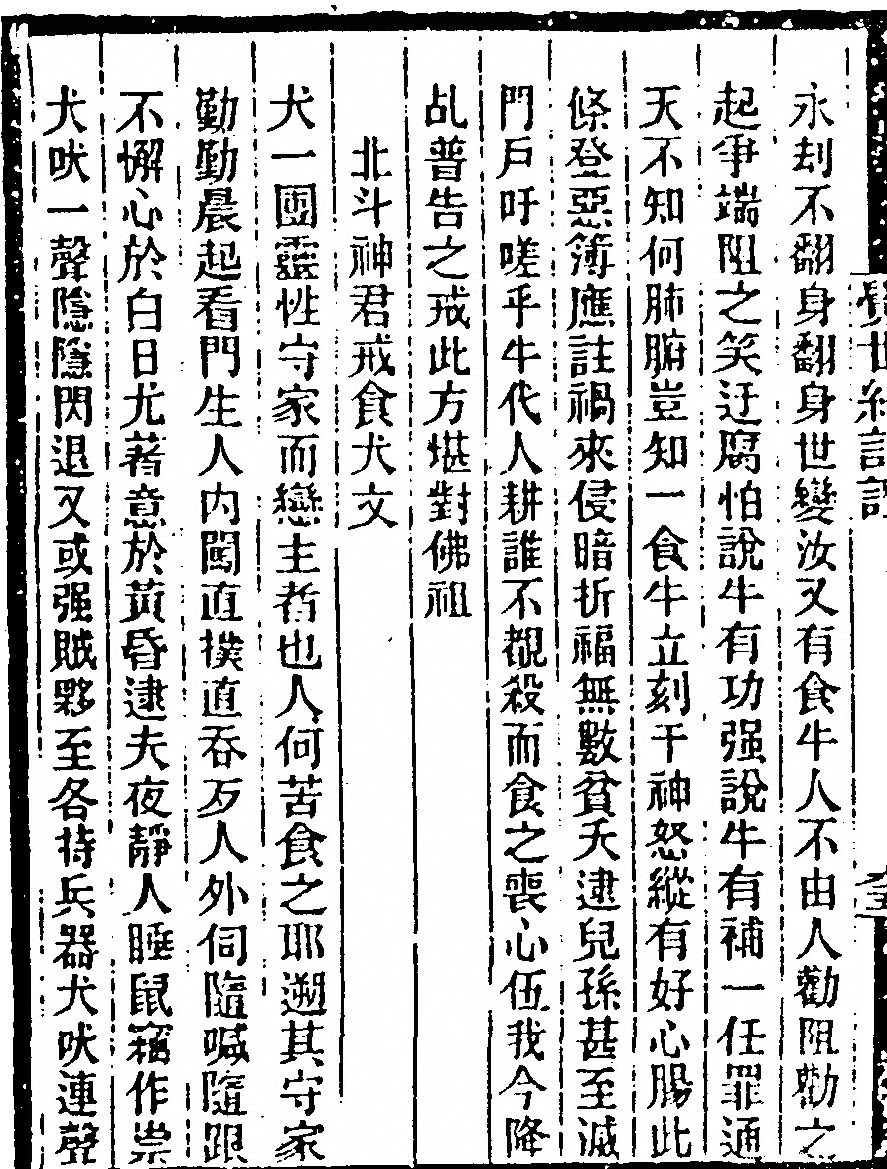 永刦不翻身翻身世變汝又有食牛人不由人勸阻勸之
起爭端阻之笑迂腐怕說牛有功强說牛有補一任罪通
天不知何肺腑豈知一食牛立刻干神怒縱有好心腸此
條登惡簿應註禍來侵暗折福無數貧夭逮兒孫甚至滅
門戶吁嗟乎牛代人耕誰不覩殺而食之喪心伍我今降
乩普告之戒此方堪對佛祖
北斗神君戒食犬文
犬一團靈性守家而戀主者也人何苦食之耶遡其守家
勤勤晨起看門生人内闖直撲直吞歹人外伺隨喊隨跟
不懈心於白日尤著意於黃昏逮夫夜靜人睡鼠竊作祟
犬吠一聲隱隱閃退又或强賊夥至各持兵器犬吠連聲